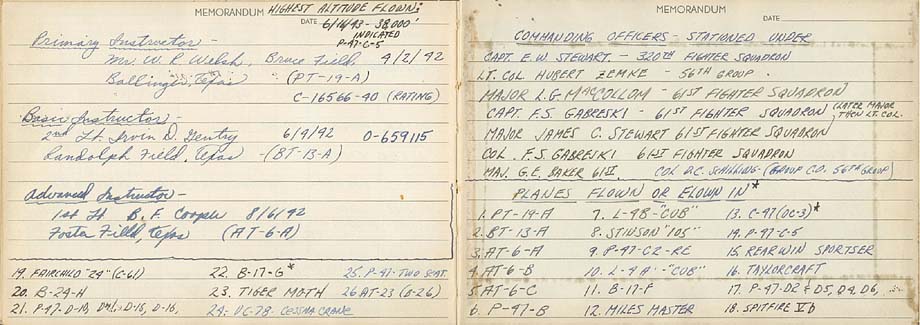 MEMORANDUM HIGHEST ALTITUDE FLOWN:
DATE 6/16/43 - 38,000'
INDICATED
P-47-C-5
Primary Instructor -
Mr. W. R. Welsh, Bruce Field 4/2/42
Ballinger, Texas (PT-19-A)
C-16566-40 (RATING)
Basic Instructor -
2nd Lt. Irvin D. Gentry 6/9/42 O-659115
Randolph Field, Texas - (BT-13-A)
Advanced Instructor -
1st Lt B. F. Cooper 8/6/42
Foster Field, Texas (AT-6-A)
19. FAIRCHILD "24" (C-61) 22. B-17-G* 25. P-47-TWO SEAT.
20. B-24-H 23. TIGER MOTH 26 AT-23 (B-26)
21. P-47-D-10, D-15, D-16, 24- UC-78- CESSNA CRANE
MEMORANDUM
DATE
COMMANDING OFFICERS - STATIONED UNDER
CAPT. E.W. STEWART. - 320TH FIGHTER SQUADRON
LT. COL HUBERT ZEMKE - 56TH GROUP.
MAJOR L.G. MacCOLLOM - 61ST FIGHTER SQUADRON
CAPT. F.S. GABRESKI - 61ST FIGHTER SQUADRON (LATER MAJOR
THEN LT. COL.
MAJOR JAMES C. STEWART 61ST FIGHTER SQUADRON
COL. F.S. GABRESKI 61ST FIGHTER SQUADRON
MAJ. G.E. BAKER 61ST. COL D.C. SCHILLING - (GROUP C.O. 56TH GROUP)
PLANES FLOWN OR FLOWN IN*
1. PT-19-A 7. L-4B-"CUB" 13. C-47 (DC-3)*
2. BT-13-A 8. STINSON "105" 14. P-47-C-5
3. AT-6-A 9. P-47-C2-RE 15. REARWIN SPORTSER
4. AT-6-B 10. L-4A-"CUB" 16. TAYLORCRAFT
5. AT-6-C 11. B-17-F 17. P-47-D2 + D5, D4, D6,
6. P-47-B 12. MILES MASTER 18. SPITFIRE V D